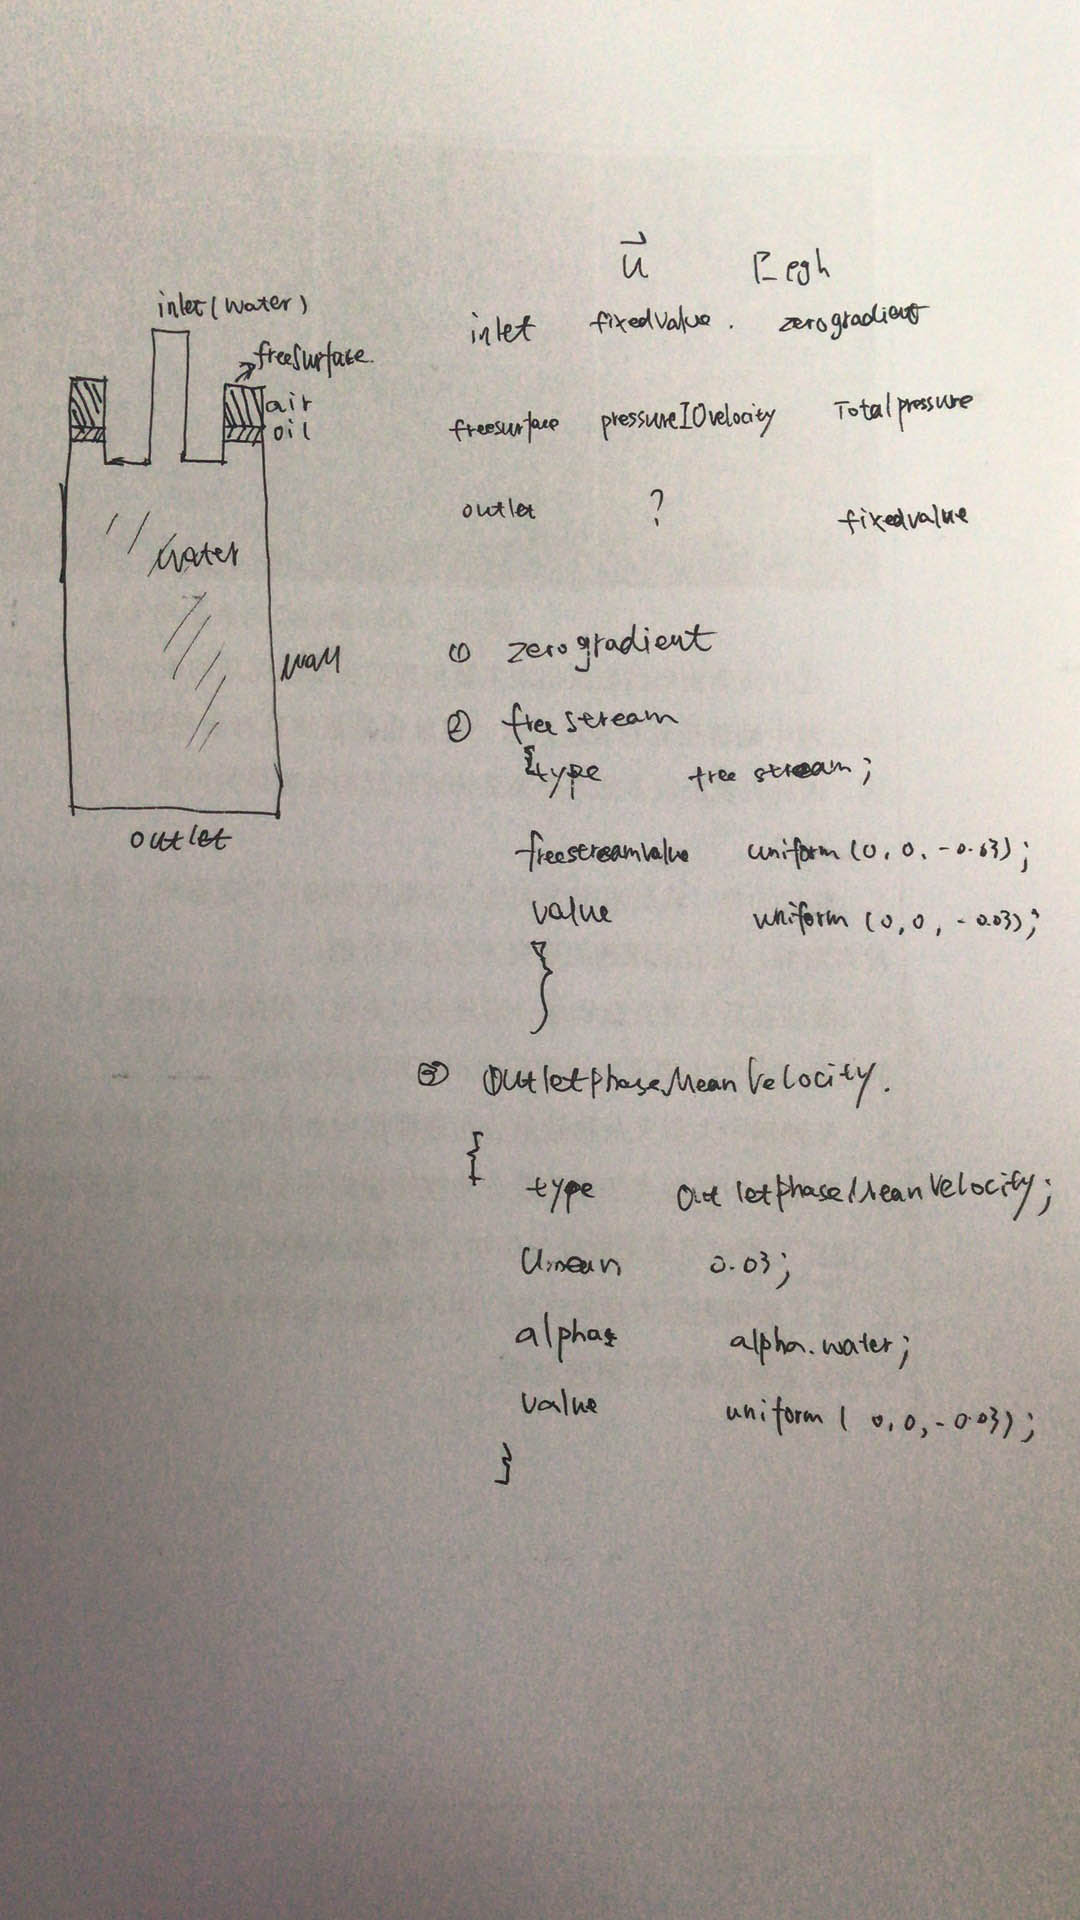 inlet (water)
freesurface.
air
oil
water
wall
outlet
u
inlet fixedvalue. zerogradient
freesurface pressureIOvelocity Totalpressure
outlet ? fixedvalue
① zerogradient
② freestream
{type freestream;
freestreamvalue uniform (0, 0, -0.03);
value uniform (0, 0, -0.03);
}
③ OutletphaseMeanVelocity.
{
type OutletphaseMeanVelocity;
Umean 0.03;
alpha alpha.water;
value uniform ( 0, 0, -0.03);
}